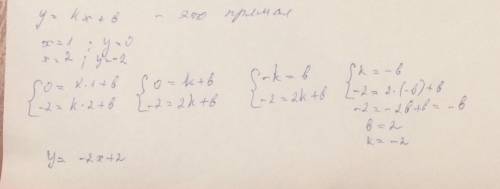 y = kx + в - это прямая
x = 1 ; y = 0
x = 2 ; y = -2
{ 0 = k·1 + в
{ -2 = k·2 + в
{ 0 = k + в
{ -2 = 2k + в
{ -k = в
{ -2 = 2k + в
{ k = -в
{ -2 = 2·(-в) + в
-2 = -2в + в = -в
в = 2
k = -2
y = -2x + 2